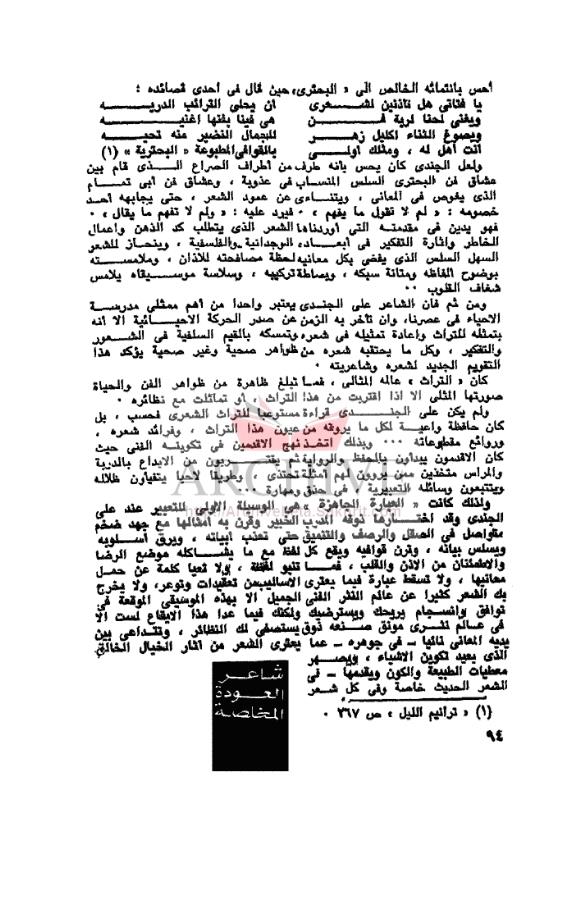 أحس بانتمائه الخالص الى « البحترى » حين قال فى احدى قصائده :
يا فتاتى هل تأذنين لشعرى أن يحلى الترائب الدريه
ويغنى لحنا لربة فن هى فينا يفنها أغنيه
ويصوغ الثناء اكليل زهر للجمال النضير منه تحيه
أنت أهل له ، ومثلك أولى بالقوافى المطبوعة « البحترية » (١)
ولعل الجندى كان يحس بأنه طرف من أطراف الصراع الذى قام بين
عشاق فن البحترى السلس المنساب فى عذوبة ، وعشاق فن أبى تمام
الذى يغوص فى المعانى ، ويتناءى عن عمود الشعر ، حتى يجابهه أحد
خصومه : « لم لا تقول ما يفهم » . فيرد عليه : « ولم لا تفهم ما يقال » .
فهو يدين فى مقدمته التى أوردناها الشعر الذى يتطلب كد الذهن واعمال
الخاطر واثارة التفكير فى أبعاده الوجدانية والفلسفية ، وينحاز للشعر
السهل السلس الذى يفضى بكل معانيه لحظة مصافحته للآذان ، وملامسته
بوضوح ألفاظه ومتانة سبكه ، وبساطة تركيبه ، وسلاسة موسيقاه يلامس
شغاف القلوب ..
ومن ثم فان الشاعر على الجندى يعتبر واحدا من أهم ممثلى مدرسة
الاحياء فى عصرنا ، وان تأخر به الزمن عن صدر الحركة الاحيائية الا أنه
بتمثله للتراث واعادة تمثيله فى شعره وتمسكه بالقيم السلفية فى الشعور
والتفكير ، وكل ما يحتقبه شعره من ظواهر صحية وغير صحية يؤكد هذا
التقويم الجديد لشعره وشاعريته .
كان « التراث » عالمه المثالى ، فما تبلغ ظاهرة من ظواهر الفن والحياة
صورتها المثلى الا اذا اقتربت من هذا التراث ، أو تماثلت مع نظائره .
ولم يكن على الجندى قراءة مسترعبا للتراث الشعرى فحسب ، بل
كان حافظة واعية لكل ما يروقه من عيون هذا التراث ، وفرائد شعره ،
وروائع مقطوعاته ... وبذلك اتخذ نهج الأقدمين فى تكوينه الفنى حيث
كان الأقدمون يبدأون بالحفظ والرواية ثم يقتربون من الابداع بالدربة
والمراس متخذين ممن يروون لهم أمثلة تحتذى ، وطريقا لاحبا يتفيأون ظلاله
ويتتبعون وسائله التعبيرية ، فى حذق ومهارة ...
ولذلك كانت « العبارة الجاهزة » هى الوسيلة الأولى للتعبير عند على
الجندى وقد اختارها ذوقه المدرب الخبير وقرن به أمثالها مع جهد ضخم
متواصل فى الصقل والرصف والتنميق حتى تعذب أبياته ، ويرق أسلوبه
ويسلس بيانه ، وترن قوافيه ويقع كل لفظ مع ما يشاكله موضع الرضا
والاطمئنان من الأذن والقلب ، فما تنبو لفظة ، ولا تعيا كلمة عن حمل
معانيها ، ولا تسقط عبارة فيما يعترى الأساليب من تعقيدات وتوعر ، ولا يخرج
بك الشعر كثيرا عن عالم النثر الفنى الجميل الا بهذه الموسيقى الموقعة فى
توافق وانسجام يريحك ويسترضيك ولكنك فيما عدا هذا الايقاع لست الا
فى عالم نثرى موثق صنعه ذوق يستصفى لك النظائر ، وتتداعى بين
يديه المعانى نائيا – فى جوهره – عما يعترى الشعر من آثار الخيال الخالق
الذى يعيد تكوين الأشياء ، ويصهر
معطيات الطبيعة والكون ويقدمها – فى
الشعر الحديث خاصة وفى كل شعر
شاعر
العودة
المخاصة
(١) « ترانيم الليل » ص ٣٦٧ .
٩٤
ARCHIVE